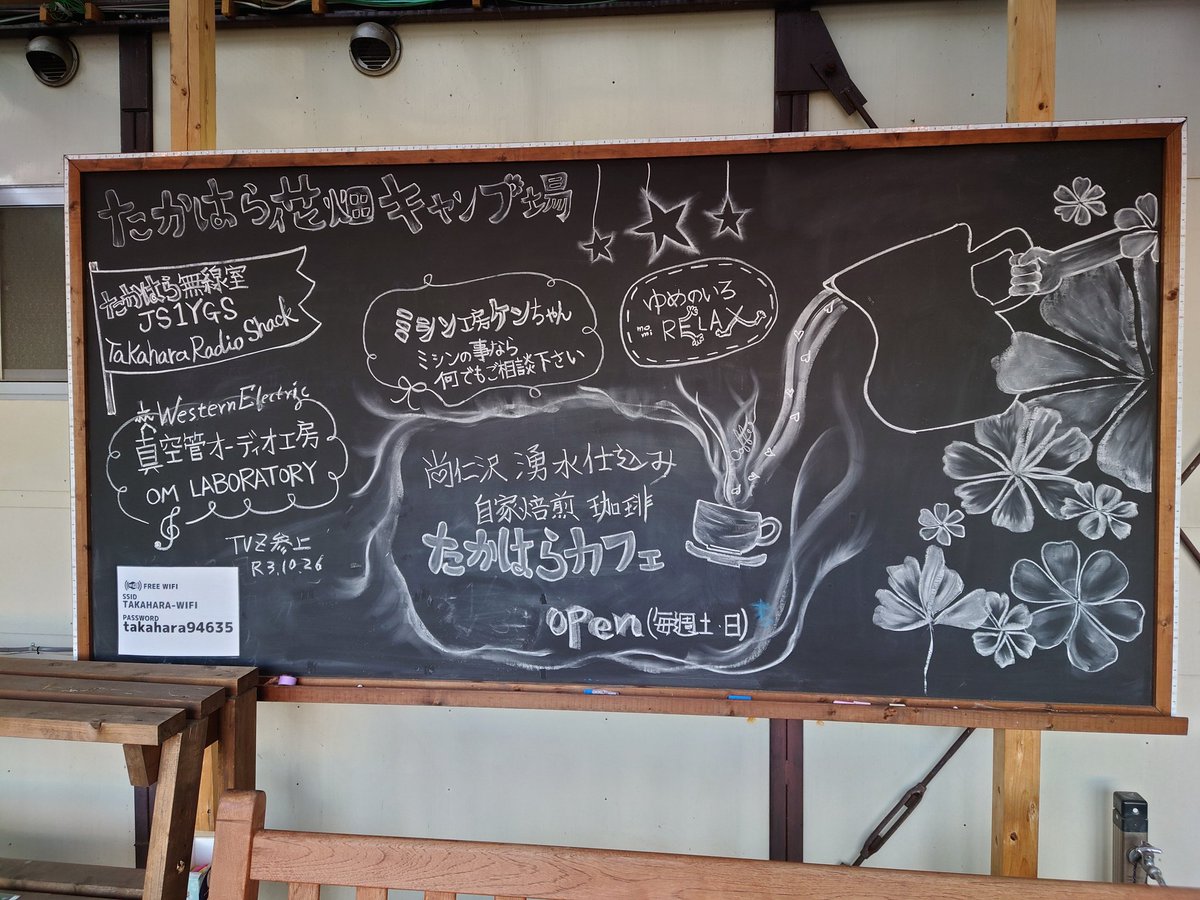 たかはら花畑キャンプ場
たかはら無線室
JS1YGS
Takahara Radio Shack
ミシン工房ケンちゃん
ミシンの事なら
何でもご相談下さい
ゆめのいろ
momi RELAX
Western Electric
真空管オーディオ工房
OM LABORATORY
TVZ参上
R3.10.26
coffee
尚仁沢 湧水仕込み
自家焙煎 珈琲
たかはらカフェ
open (毎週土・日)
FREE WIFI
SSID
TAKAHARA-WIFI
PASSWORD
takahara94635